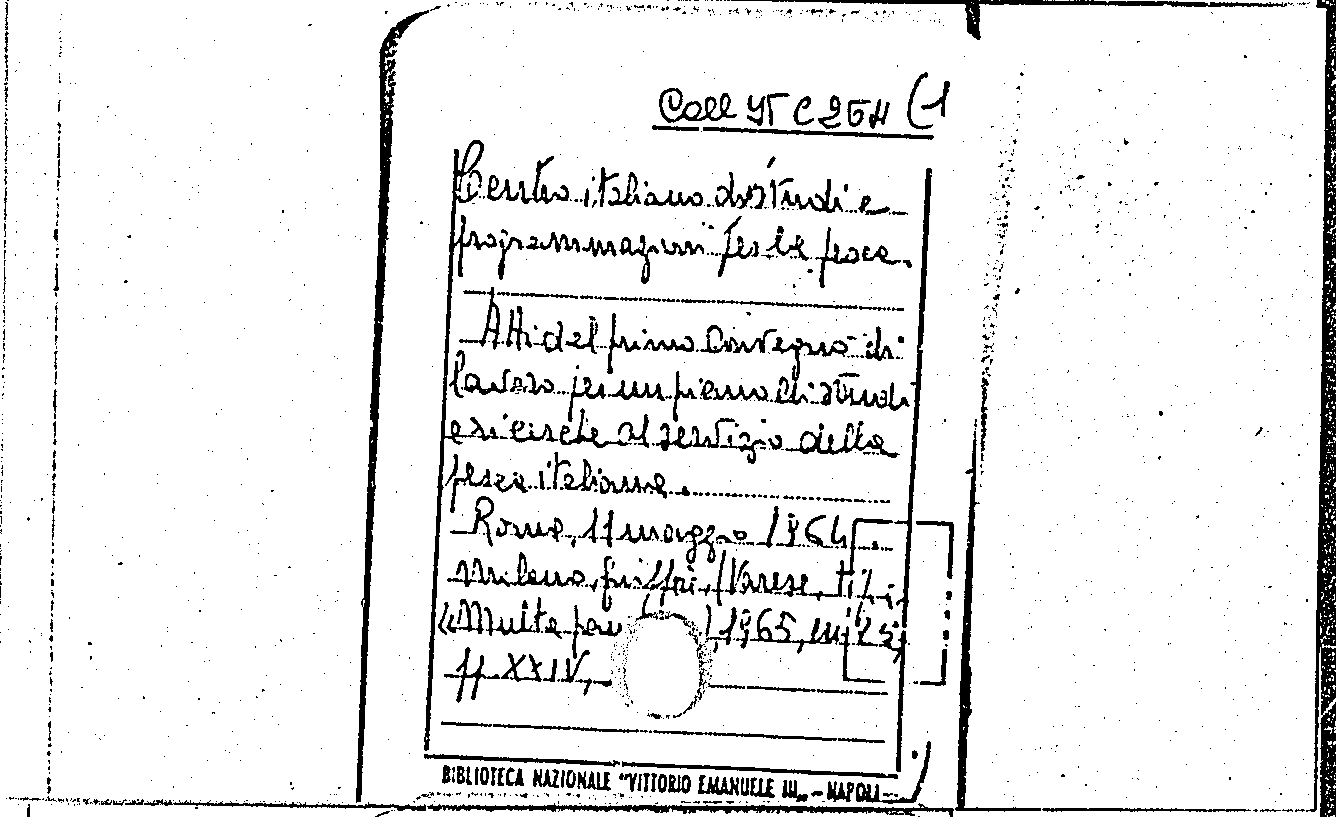 Coll VI C 254 (1
Centro italiano di studi e
programmazioni per la pesca.
Atti del primo Convegno di
lavoro per un piano di studi
e ricerche al servizio della
pesca italiana.
Roma, 11 maggio 1964.
Milano, Giuffrè, (Varese, tip.
«Multa pau 1965, in 8°,
pp. XXIV,
BIBLIOTECA NAZIONALE "VITTORIO EMANUELE III„ - NAPOLI